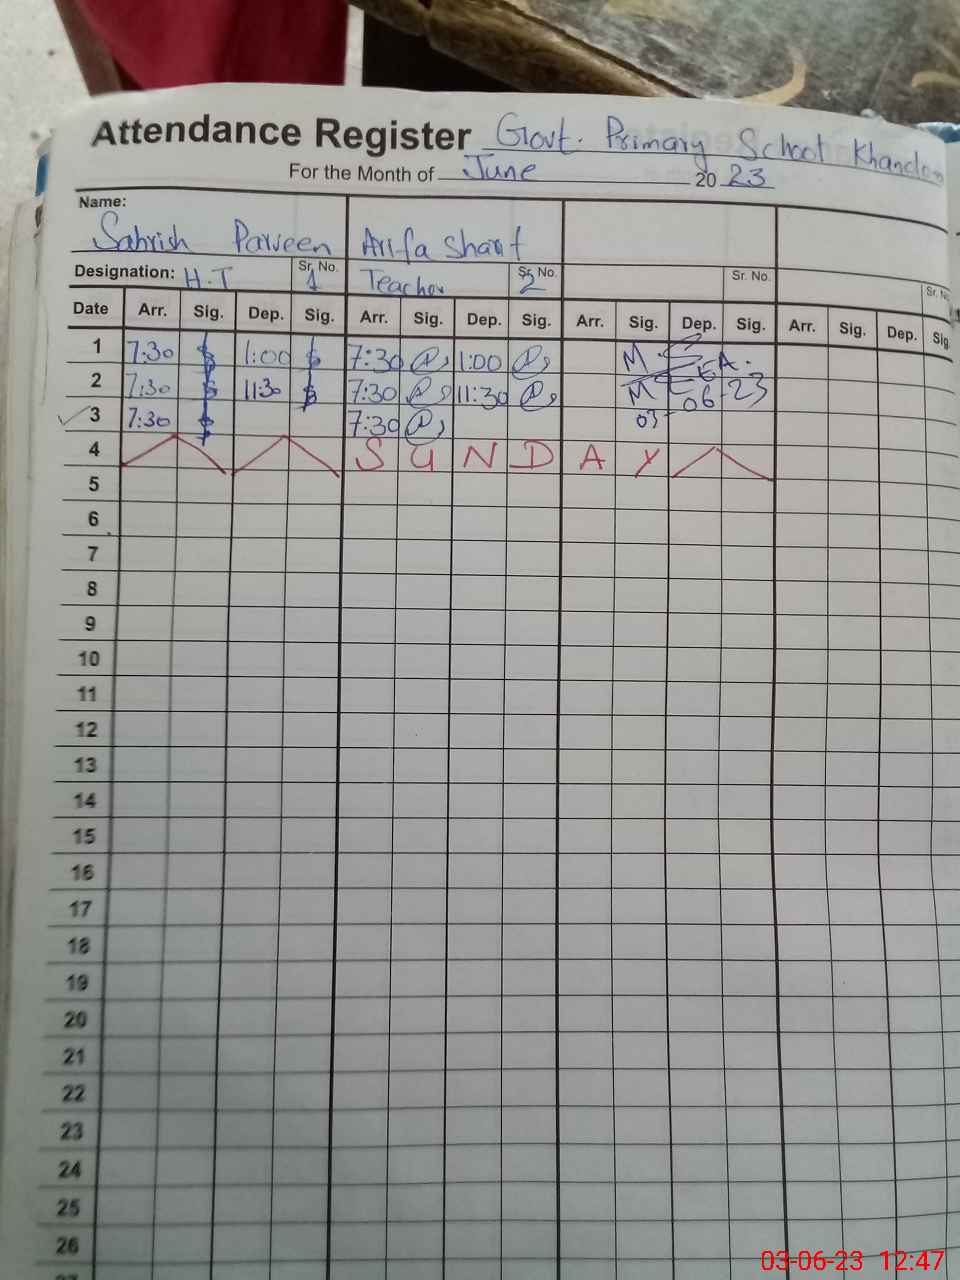 Attendance Register Govt. Primary School Khandon
For the Month of June 2023
Name:
Sahrish Parveen Arifa Sharif
Designation: H.T Sr. No. 1 Teacher Sr. No. 2 Sr. No. Sr. No.
Date Arr. Sig. Dep. Sig. Arr. Sig. Dep. Sig. Arr. Sig. Dep. Sig. Arr. Sig. Dep. Sig.
1 7:30 1:00 7:30 1:00 M.
2 7:30 11:30 7:30 11:30 MEEA.
3 7:30 7:30 03-06-23
4 SUNDAY
5
6
7
8
9
10
11
12
13
14
15
16
17
18
19
20
21
22
23
24
25
26
27
03-06-23 12:47